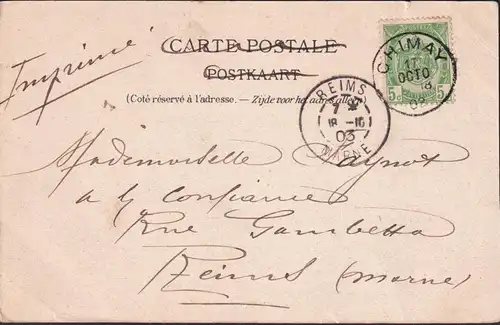 Imprimé
CARTE POSTALE
POSTKAART
(Coté réservé à l'adresse. – Zijde voor het adres alleen.)
CHIMAY
17
OCTO
18
03
5c 5c
REIMS
1*
18 -10
03
MARNE
Mademoiselle
a la confiance
Rue Gambetta
Reims (Marne)